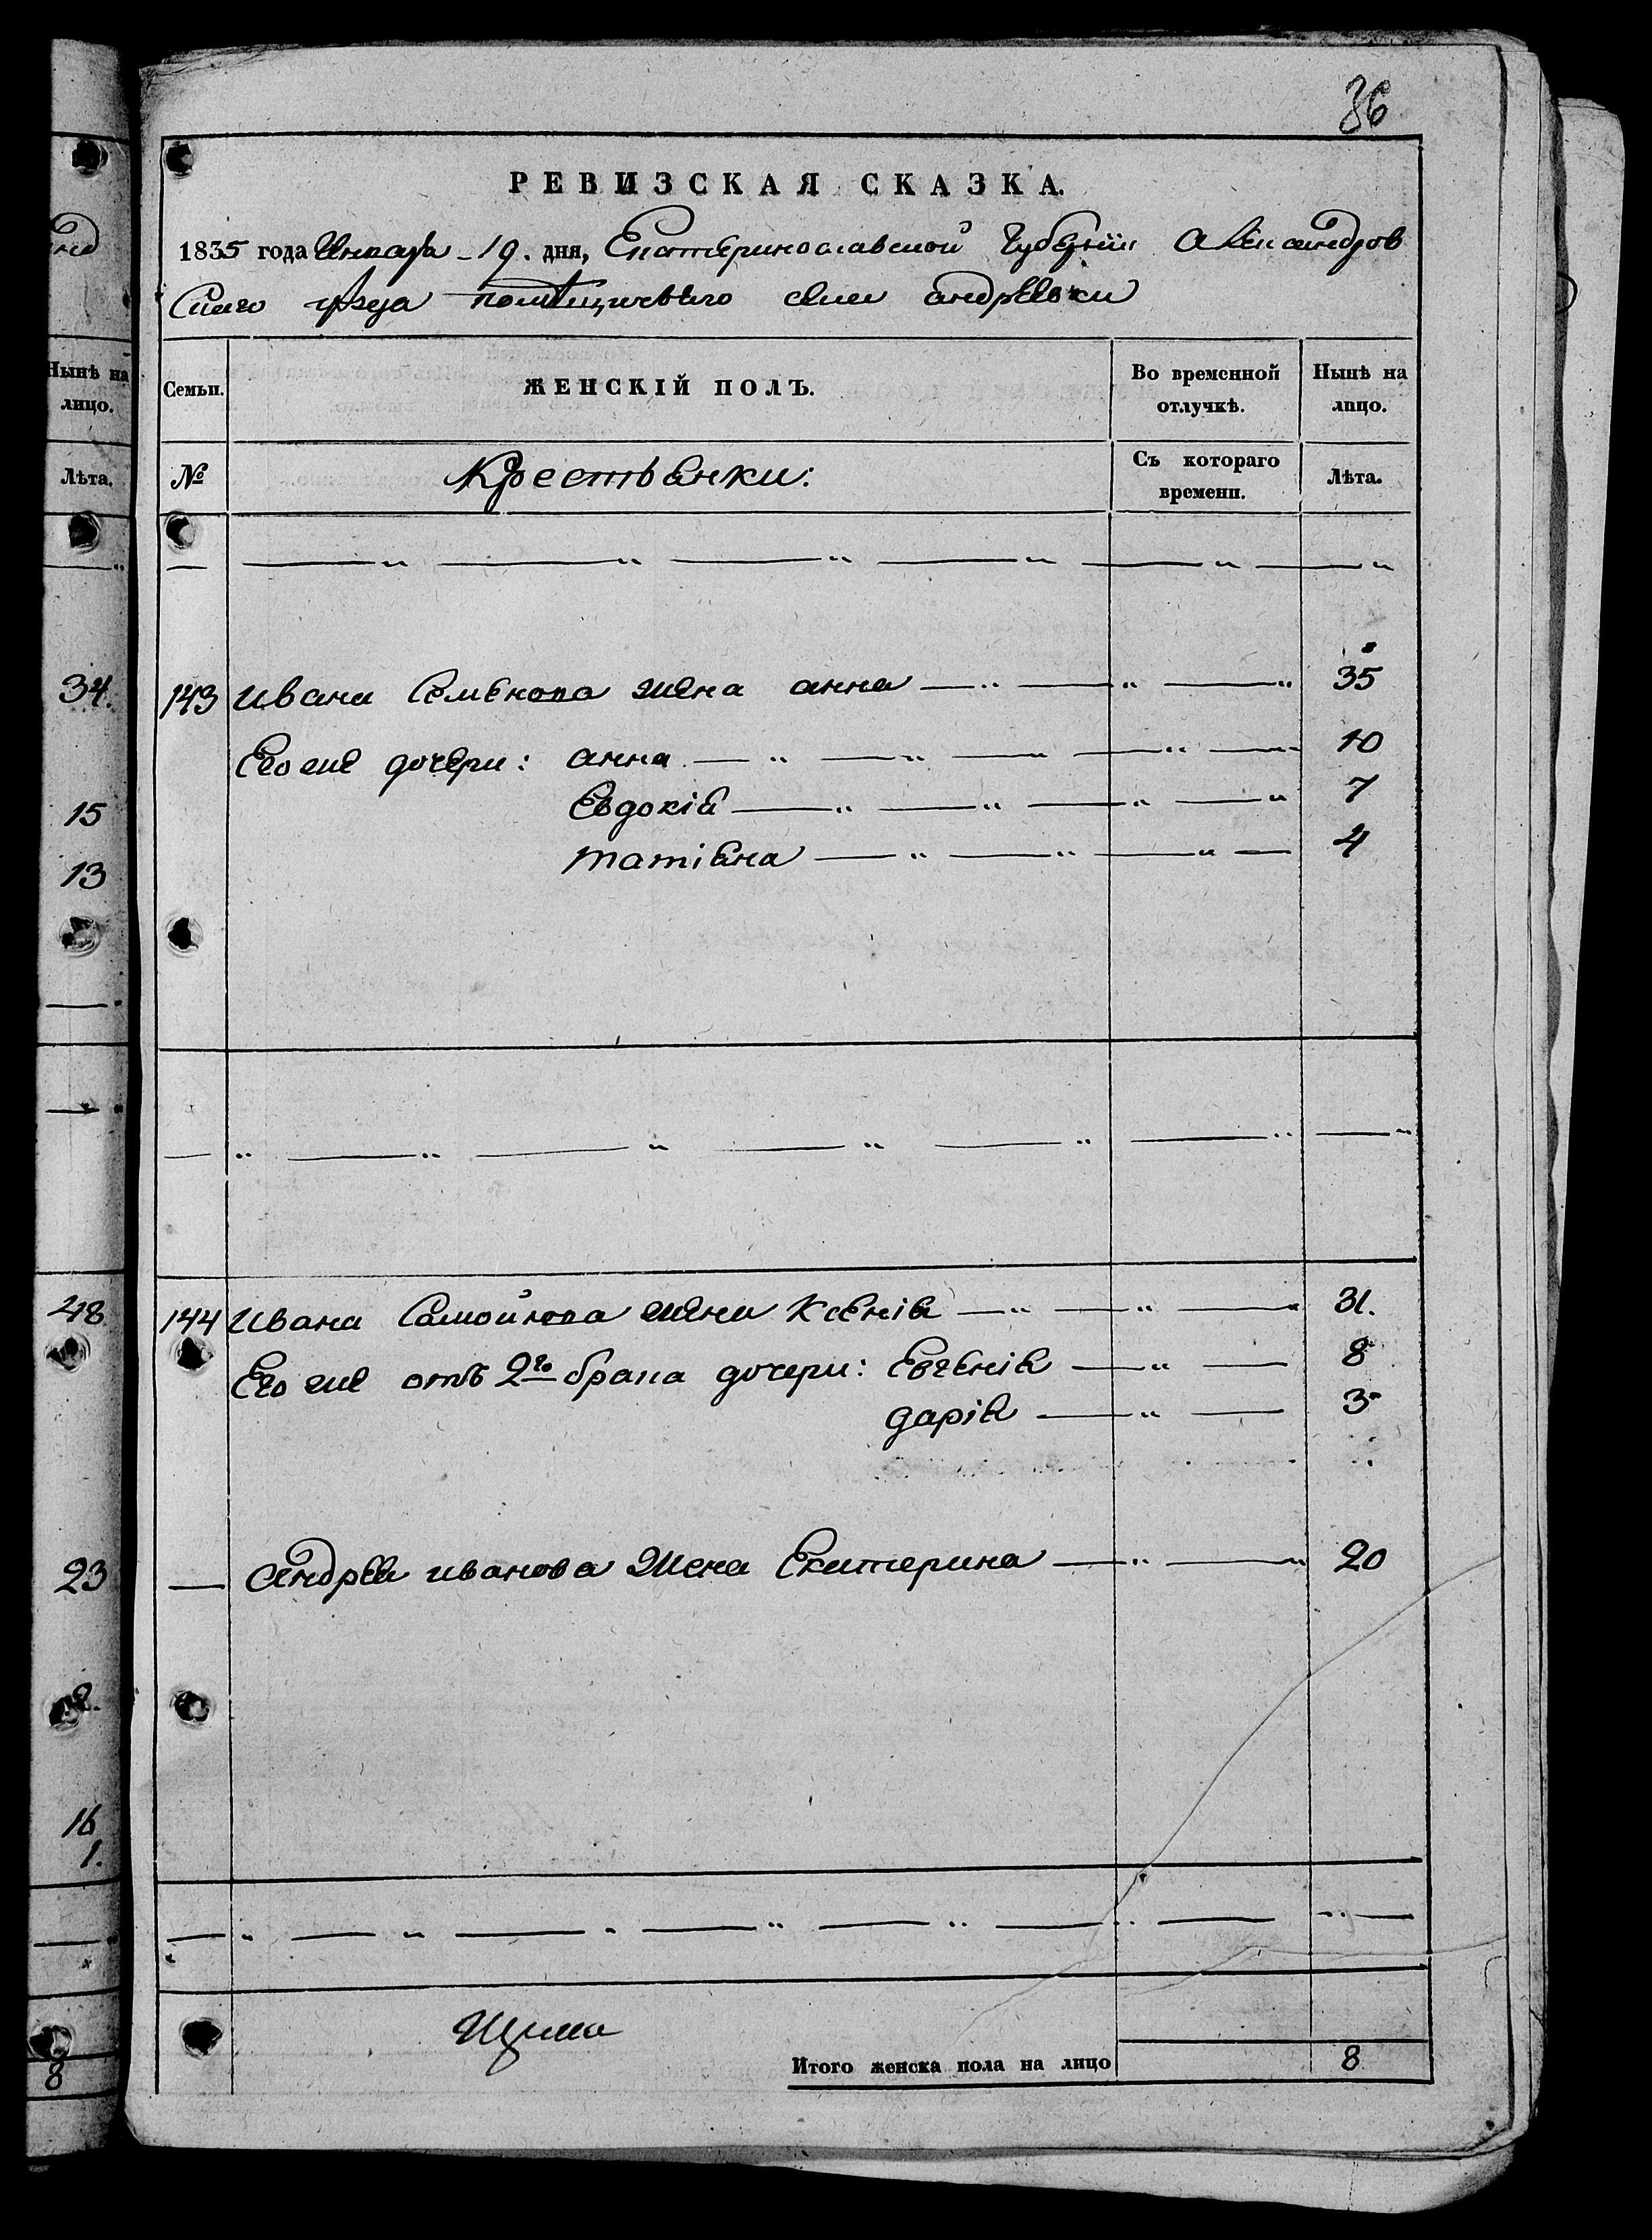 36
РЕВИЗСКАЯ СКАЗКА.
1835 года Января 19. дня, Екатеринославской Губерніи Александров
скаго уѣзда помѣщичьяго села андрѣевки
нынѣ на лицо.
Семьи. ЖЕНСКІЙ ПОЛЪ. Во временной отлучкѣ. Нынѣ на лицо.
Лѣта.
№ Крестьянки: Съ котораго времени. Лѣта.
34. 143 Ивана Семенова жена анна 35
Его же дочери: анна 10
15 Евдокія 7
13 татіяна 4
48 144 Ивана Самойлова жена Ксенія 31.
Его же отъ 2го брака дочери: Евгенія 8
дарія 3
23 андрея иванова жена Екатерина 20
2.
16
1.
8 Итого женска пола на лицо 8